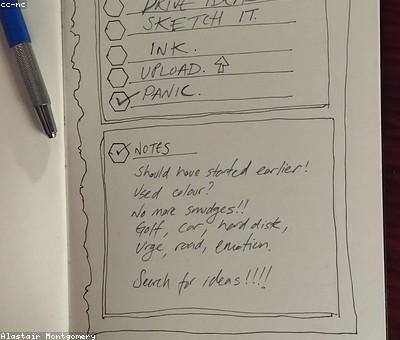 cc-nc
DRIVE
SKETCH IT.
INK.
UPLOAD.
PANIC.
NOTES
Should have started earlier!
Used colour?
No more smudges!!
Golf, car, hard disk,
Urge, road, emotion.
Search for ideas!!!!
Alastair Montgomery